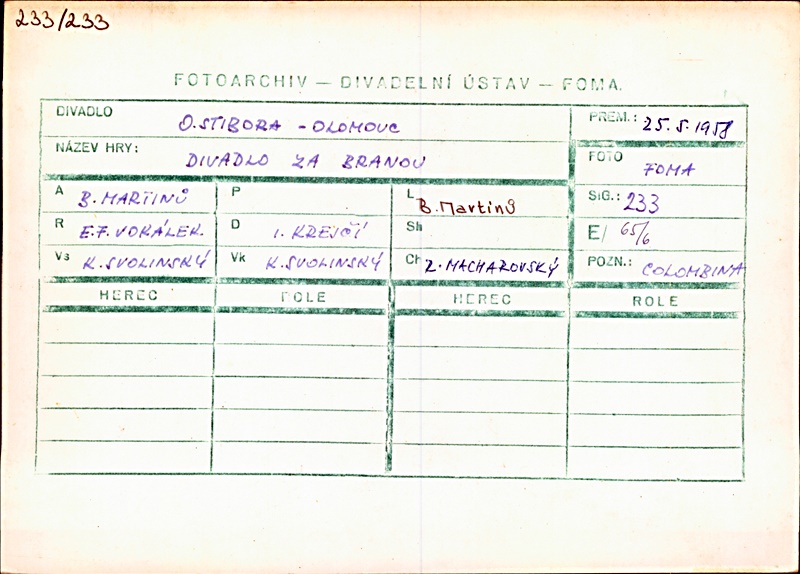 233/233
FOTOARCHIV — DIVADELNÍ ÚSTAV — FOMA.
DIVADLO O. STIBORA - OLOMOUC PREM.: 25.5.1958
NÁZEV HRY: DIVADLO ZA BRANOU FOTO FOMA
A B. MARTINŮ P L B. Martinů SIG.: 233
R E.F. VOKÁLEK. D I. KREJČÍ Sh E/ 65/6
Vs K. SVOLINSKÝ Vk K. SVOLINSKÝ Ch Z. MACHAROVSKÝ POZN.: COLOMBINA
HEREC ROLE HEREC ROLE